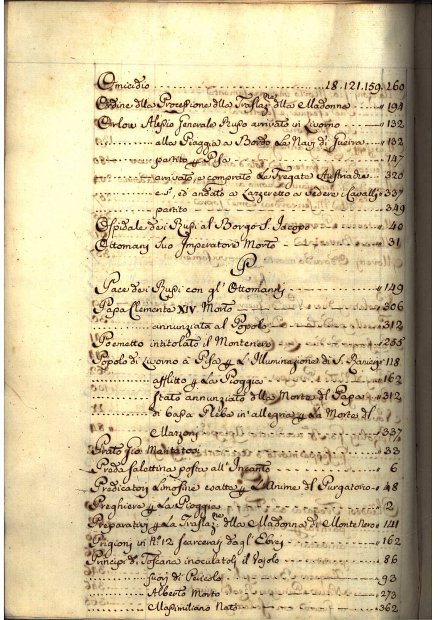 Omicidio ........ 18. 121. 159. 260
Ordine dlla Processione dlla Traslaz.ne dlla Madonna ........ 194
Orlow Alessio Generale Russo arrivato in Livorno ........ 132
alla Piaggia a Bordo La Nav di Guerra ........ 132
partito p Pisa ........ 147
arrivato, e comprato La Fregata Austriache ........ 320
e S. ed andato a Lazeretto a Vedere i Cavalli ........ 337
partito ........ 349
Ospidale dei Russi al Borgo S. Jacopo ........ 40
Ottomani Suo Imperatore Morto ........ 31
P
Pace dei Russi con gl' Ottomanni ........ 149
Papa Clemente XIV Morto ........ 306
annunziata al Popolo ........ 312
Poemetto intitolato il Montenero ........ 235
Popolo di Livorno à Pisa p L'Illuminazione di S. Ranieri 118
afflitto p La Pioggia ........ 162
stato annunziato dlla Morte dl Papa ........ 312
di bassa Plebe in allegria p La Morte dl
........ 337
Prato Gio ........ 33
Preda Galettina posta all' Incanto ........ 6
Predicatori Limosine p L'Anime dl Purgatorio ........ 48
Preghiere p La Pioggia ........ 2
Preparativi p La Traslaz.ne dlla Madonna di Monte Nero
Prigioni in N.º 12 scarcerati dagl' Ebrei ........ 162
Principi di Toscana inoculatoli il Vajolo ........ 86
fuori di Pericolo ........ 93
Alberto Morto ........ 273
Massimiliano Nato ........ 362